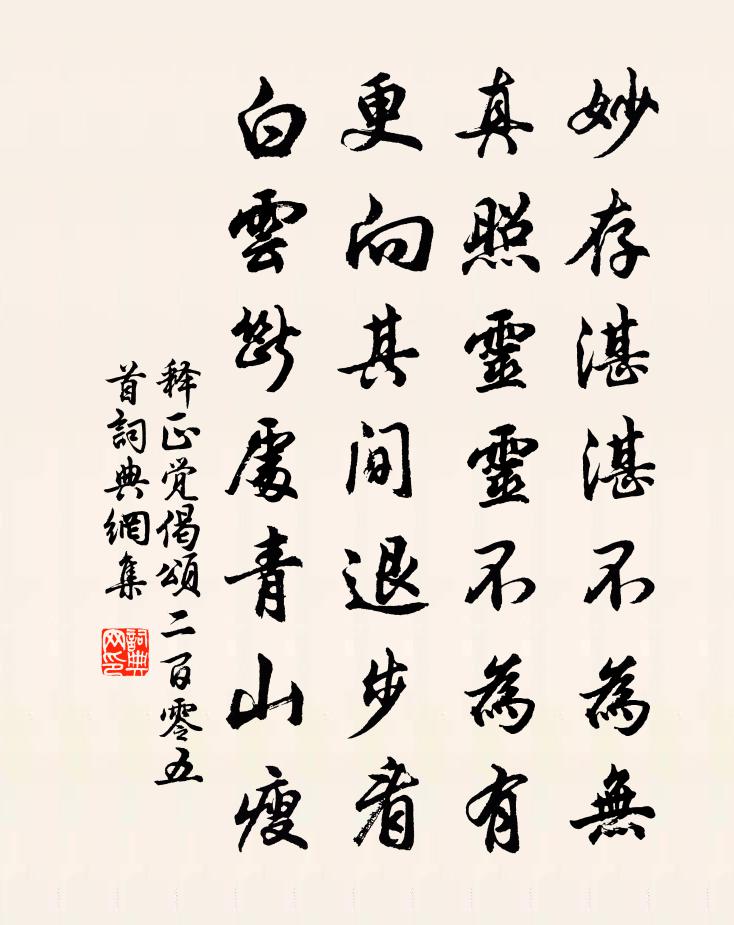 妙存湛湛不為無
真照靈靈不為有
更向其間退步看
白雲斷處青山瘦
释正觉偈頌二百零五
首詞典網集
詞典
网印